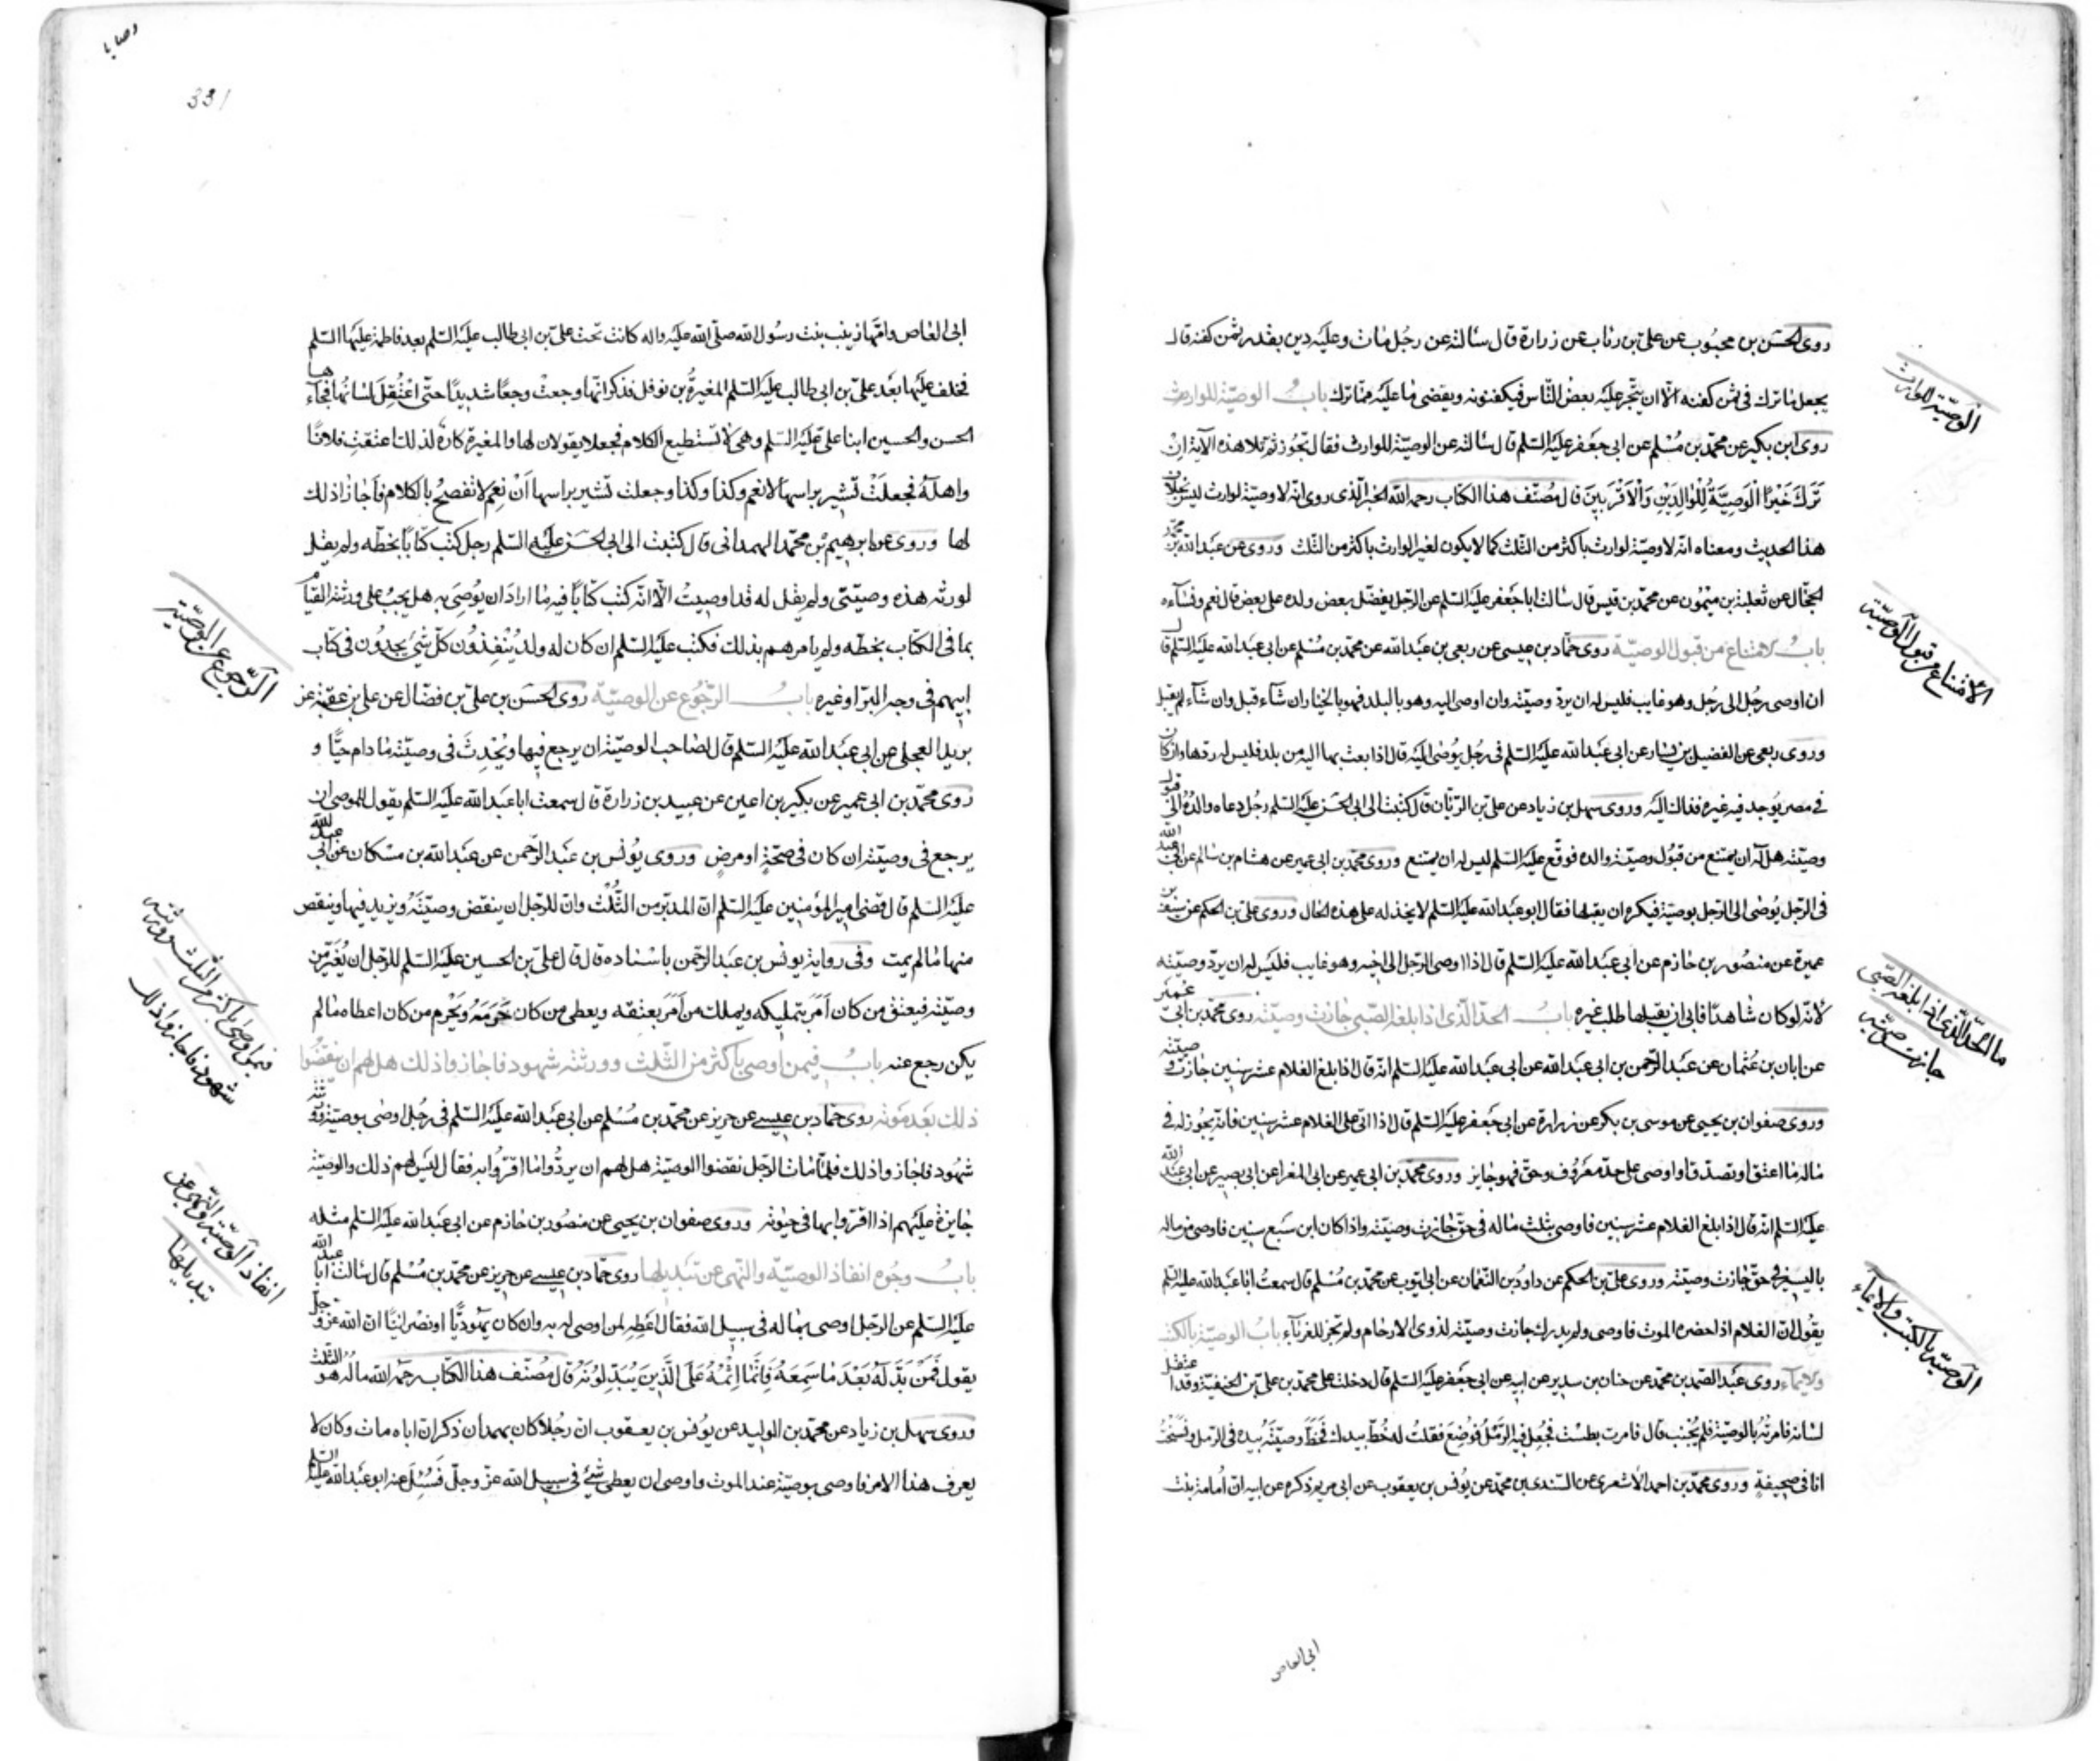 روى الحسن بن محبوب عن على بن رئاب عن زرارة قال سالته عن رجل مات وعليه دين بقدر ثمن كفنه قال
يجعل ما ترك فى ثمن كفنه الا ان يتجر عليه بعض الناس فيكفنونه ويقضى ما عليه مما ترك باب الوصية للوارث
روى ابن بكير عن محمد بن مسلم عن ابى جعفر عليه السلم قال سالته عن الوصية للوارث فقال تجوز ثم تلا هذه الآية ان
ترك خيرا الوصية للوالدين والاقربين قال مصنف هذا الكتاب رحمه الله الخبر الذى روى انه لا وصية لوارث ليس بخلاف
هذا الحديث ومعناه انه لا وصية لوارث باكثر من الثلث كما لا يكون لغير الوارث باكثر من الثلث وروى عن عبد الله بن محمد
الحجال عن ثعلبة بن ميمون عن محمد بن قيس قال سالت ابا جعفر عليه السلم عن الرجل يفضل بعض ولده على بعض قال نعم ونساءه
باب الامتناع من قبول الوصية روى حماد بن عيسى عن ربعى بن عبد الله عن محمد بن مسلم عن ابى عبد الله عليه السلم قال
ان اوصى رجل الى رجل وهو غايب فليس له ان يرد وصيته وان اوصى اليه وهو بالبلد فهو بالخيار ان شآء قبل وان شآء لم يقبل
وروى ربعى عن الفضيل بن يسار عن ابى عبد الله عليه السلم فى رجل يوصى اليه قال اذا بعث بها اليه من بلد فليس له ردها وان كان
فى مصر يوجد فيه غيره فذاك اليه وروى سهل بن زياد عن على بن الريان قال كتبت الى ابى الحسن عليه السلم رجل دعاه والده الى قبول
وصيته هل له ان يمتنع من قبول وصية والده فوقع عليه السلم ليس له ان يمتنع وروى محمد بن ابى عمير عن هشام بن سالم عن ابى عبد الله
فى الرجل يوصى الى الرجل بوصية فيكره ان يقبلها فقال ابو عبد الله عليه السلم لا يخذله على هذه الحال وروى على بن الحكم عن سيف بن
عميرة عن منصور بن حازم عن ابى عبد الله عليه السلم قال اذا اوصى الرجل الى اخيه وهو غايب فليس له ان يرد وصيته
لانه لو كان شاهدا فابى ان يقبلها طلب غيره باب الحد الذى اذا بلغه الصبى جازت وصيته روى محمد بن ابى عمير
عن ابان بن عثمان عن عبد الرحمن بن ابى عبد الله عن ابى عبد الله عليه السلم انه قال اذا بلغ الغلام عشر سنين جازت وصيته
وروى صفوان بن يحيى عن موسى بن بكر عن زرارة عن ابى جعفر عليه السلم قال اذا اتى على الغلام عشر سنين فانه يجوز له فى
ماله ما اعتق او تصدق او اوصى على حد معروف وحق فهو جايز وروى محمد بن ابى عمير عن ابى المغرا عن ابى بصير عن ابى عبد الله
عليه السلم انه قال اذا بلغ الغلام عشر سنين فاوصى بثلث ماله فى حق جازت وصيته واذا كان ابن سبع سنين فاوصى من ماله
باليسير فى حق جازت وصيته وروى على بن الحكم عن داود بن النعمان عن ابى ايوب عن محمد بن مسلم قال سمعت ابا عبد الله عليه السلم
يقول ان الغلام اذا حضره الموت فاوصى ولم يدرك جازت وصيته لذوى الارحام ولم تجز للغربآء باب الوصية بالكتب
والايمآء روى عبد الصمد بن محمد عن حنان بن سدير عن ابيه عن ابى جعفر عليه السلم قال دخلت على محمد بن على بن الحنفية وقد اعتقل
لسانه فامرته بالوصية فلم يجب قال فامرت بطست فجعل فيه الرمل فوضع فقلت له خط بيدك فخط وصيته بيده فى الرمل ونسخت
انا فى صحيفة وروى محمد بن احمد الاشعرى عن السندى بن محمد عن يونس بن يعقوب عن ابى مريم ذكره عن ابيه ان امامة بنت
الوصية للوارث
الامتناع من قبول الوصية
ما الحد الذى اذا بلغه الصبى
جازت وصيته
الوصية بالكتب والايماء
ابى العاص
وصايا
331
ابى العاص وامها زينب بنت رسول الله صلى الله عليه واله كانت تحت على بن ابى طالب عليه السلم بعد فاطمة عليها السلم
فخلف عليها بعد على بن ابى طالب عليه السلم المغيرة بن نوفل فذكر انها وجعت وجعا شديدا حتى اعتقل لسانها فجآءها
الحسن والحسين ابنا على عليه السلم وهى لا تستطيع الكلام فجعلا يقولان لها والمغيرة كاره لذلك اعتقت فلانا
واهله فجعلت تشير براسها لا نعم وكذا وكذا وجعلت تشير براسها ان نعم لا تفصح بالكلام فاجازا ذلك
لها وروى عن ابرهيم بن محمد الهمدانى قال كتبت الى ابى الحسن عليه السلم رجل كتب كتابا بخطه ولم يقل
لورثته هذه وصيتى ولم يقل له قد اوصيت الا انه كتب كتابا فيه ما اراد ان يوصى به هل يجب على ورثته القيام
بما فى الكتاب بخطه ولم يامرهم بذلك فكتب عليه السلم ان كان له ولد ينفذون كل شئ يجدون فى كتاب
ابيهم فى وجه البر او غيره باب الرجوع عن الوصية روى الحسن بن على بن فضال عن على بن عقبة عن
بريد العجلى عن ابى عبد الله عليه السلم قال لصاحب الوصية ان يرجع فيها ويحدث فى وصيته ما دام حيا و
روى محمد بن ابى عمير عن بكير بن اعين عن عبيد بن زرارة قال سمعت ابا عبد الله عليه السلم يقول للموصى ان
يرجع فى وصيته ان كان فى صحة او مرض وروى يونس بن عبد الرحمن عن عبد الله بن مسكان عن ابى عبد الله
عليه السلم قال قضى امير المؤمنين عليه السلم ان المدبر من الثلث وان للرجل ان ينقض وصيته ويزيد فيها وينقص
منها ما لم يمت وفى رواية يونس بن عبد الرحمن باسناده قال قال على بن الحسين عليه السلم للرجل ان يغير من
وصيته فيعتق من كان امر بتمليكه ويملك من امر بعتقه ويعطى من كان حرمه ويحرم من كان اعطاه ما لم
يكن رجع عنه باب فيمن اوصى باكثر من الثلث وورثته شهود فاجازوا ذلك هل لهم ان ينقضوا
ذلك بعد موته روى حماد بن عيسى عن حريز عن محمد بن مسلم عن ابى عبد الله عليه السلم فى رجل اوصى بوصية وورثته
شهود فاجازوا ذلك فلما مات الرجل نقضوا الوصية هل لهم ان يردوا ما اقروا به فقال ليس لهم ذلك والوصية
جايزة عليهم اذا اقروا بها فى حيوته وروى صفوان بن يحيى عن منصور بن حازم عن ابى عبد الله عليه السلم مثله
باب وجوه انفاذ الوصية والنهى عن تبديلها روى حماد بن عيسى عن حريز عن محمد بن مسلم قال سالت ابا عبد الله
عليه السلم عن الرجل اوصى بماله فى سبيل الله فقال اعطه لمن اوصى له به وان كان يهوديا او نصرانيا ان الله عز وجل
يقول فمن بدله بعد ما سمعه فانما اثمه على الذين يبدلونه قال مصنف هذا الكتاب رحمه الله ماله هو الثلث
وروى سهل بن زياد عن محمد بن الوليد عن يونس بن يعقوب ان رجلا كان بهمدان ذكر ان اباه مات وكان لا
يعرف هذا الامر فاوصى بوصية عند الموت واوصى ان يعطى شئ فى سبيل الله عز وجل فسئل عنه ابو عبد الله عليه السلم
الرجوع عن الوصية
فيمن اوصى باكثر من الثلث وورثته
شهود فاجازوا ذلك
انفاذ الوصية والنهى عن
تبديلها